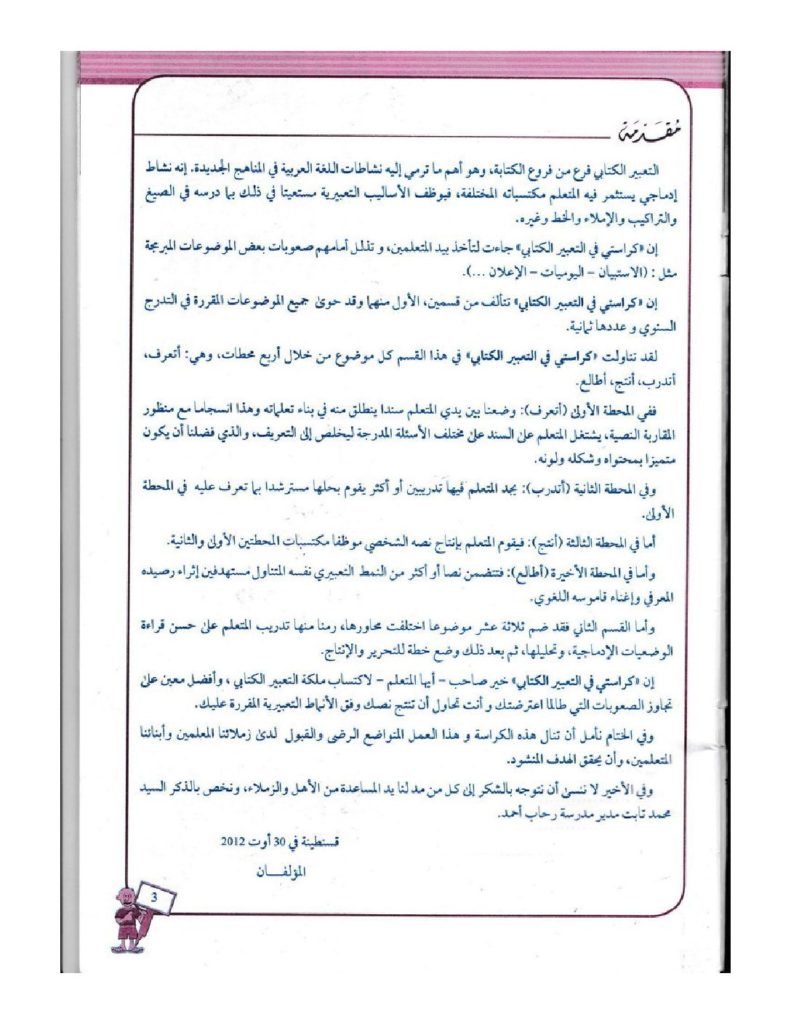 مقدمة
التعبير الكتابي فرع من فروع الكتابة، وهو أهم ما ترمي إليه نشاطات اللغة العربية في المناهج الجديدة. إنه نشاط
إدماجي يستثمر فيه المتعلم مكتسباته المختلفة، فيوظف الأساليب التعبيرية مستعينا في ذلك بما درسه في الصيغ
والتراكيب والإملاء والخط وغيره.
إن «كراستي في التعبير الكتابي» جاءت لتأخذ بيد المتعلمين، و تذلل أمامهم صعوبات بعض الموضوعات المبرمجة
مثل : (الاستبيان – اليوميات – الإعلان ...).
إن «كراستي في التعبير الكتابي» تتألف من قسمين، الأول منهما وقد حوى جميع الموضوعات المقررة في التدرج
السنوي و عددها ثمانية.
لقد تناولت «كراستي في التعبير الكتابي» في هذا القسم كل موضوع من خلال أربع محطات، وهي: أتعرف،
أتدرب، أنتج، أطالع.
ففي المحطة الأولى (أتعرف): وضعنا بين يدي المتعلم سندا ينطلق منه في بناء تعلماته وهذا انسجاما مع منظور
المقاربة النصية، يشتغل المتعلم على السند على مختلف الأسئلة المدرجة ليخلص إلى التعريف، والذي فضلنا أن يكون
متميزا بمحتواه وشكله ولونه.
وفي المحطة الثانية (أتدرب): يجد المتعلم فيها تدريبين أو أكثر يقوم بحلها مسترشدا بما تعرف عليه في المحطة
الأولى.
أما في المحطة الثالثة (أنتج): فيقوم المتعلم بإنتاج نصه الشخصي موظفا مكتسبات المحطتين الأولى والثانية.
وأما في المحطة الأخيرة (أطالع): فتتضمن نصا أو أكثر من النمط التعبيري نفسه المتناول مستهدفين إثراء رصيده
المعرفي وإغناء قاموسه اللغوي.
وأما القسم الثاني فقد ضم ثلاثة عشر موضوعا اختلفت محاورها، رمنا منها تدريب المتعلم على حسن قراءة
الوضعيات الإدماجية، وتحليلها، ثم بعد ذلك وضع خطة للتحرير والإنتاج.
إن «كراستي في التعبير الكتابي» خير صاحب – أيها المتعلم – لاكتساب ملكة التعبير الكتابي ، وأفضل معين على
تجاوز الصعوبات التي طالما اعترضتك و أنت تحاول أن تنتج نصك وفق الأنماط التعبيرية المقررة عليك.
وفي الختام نأمل أن تنال هذه الكراسة و هذا العمل المتواضع الرضى والقبول لدى زملائنا المعلمين وأبنائنا
المتعلمين، وأن يحقق الهدف المنشود.
وفي الأخير لا ننسى أن نتوجه بالشكر إلى كل من مد لنا يد المساعدة من الأهل والزملاء، ونخص بالذكر السيد
محمد ثابت مدير مدرسة رحاب أحمد.
قسنطينة في 30 أوت 2012
المؤلفــان
3